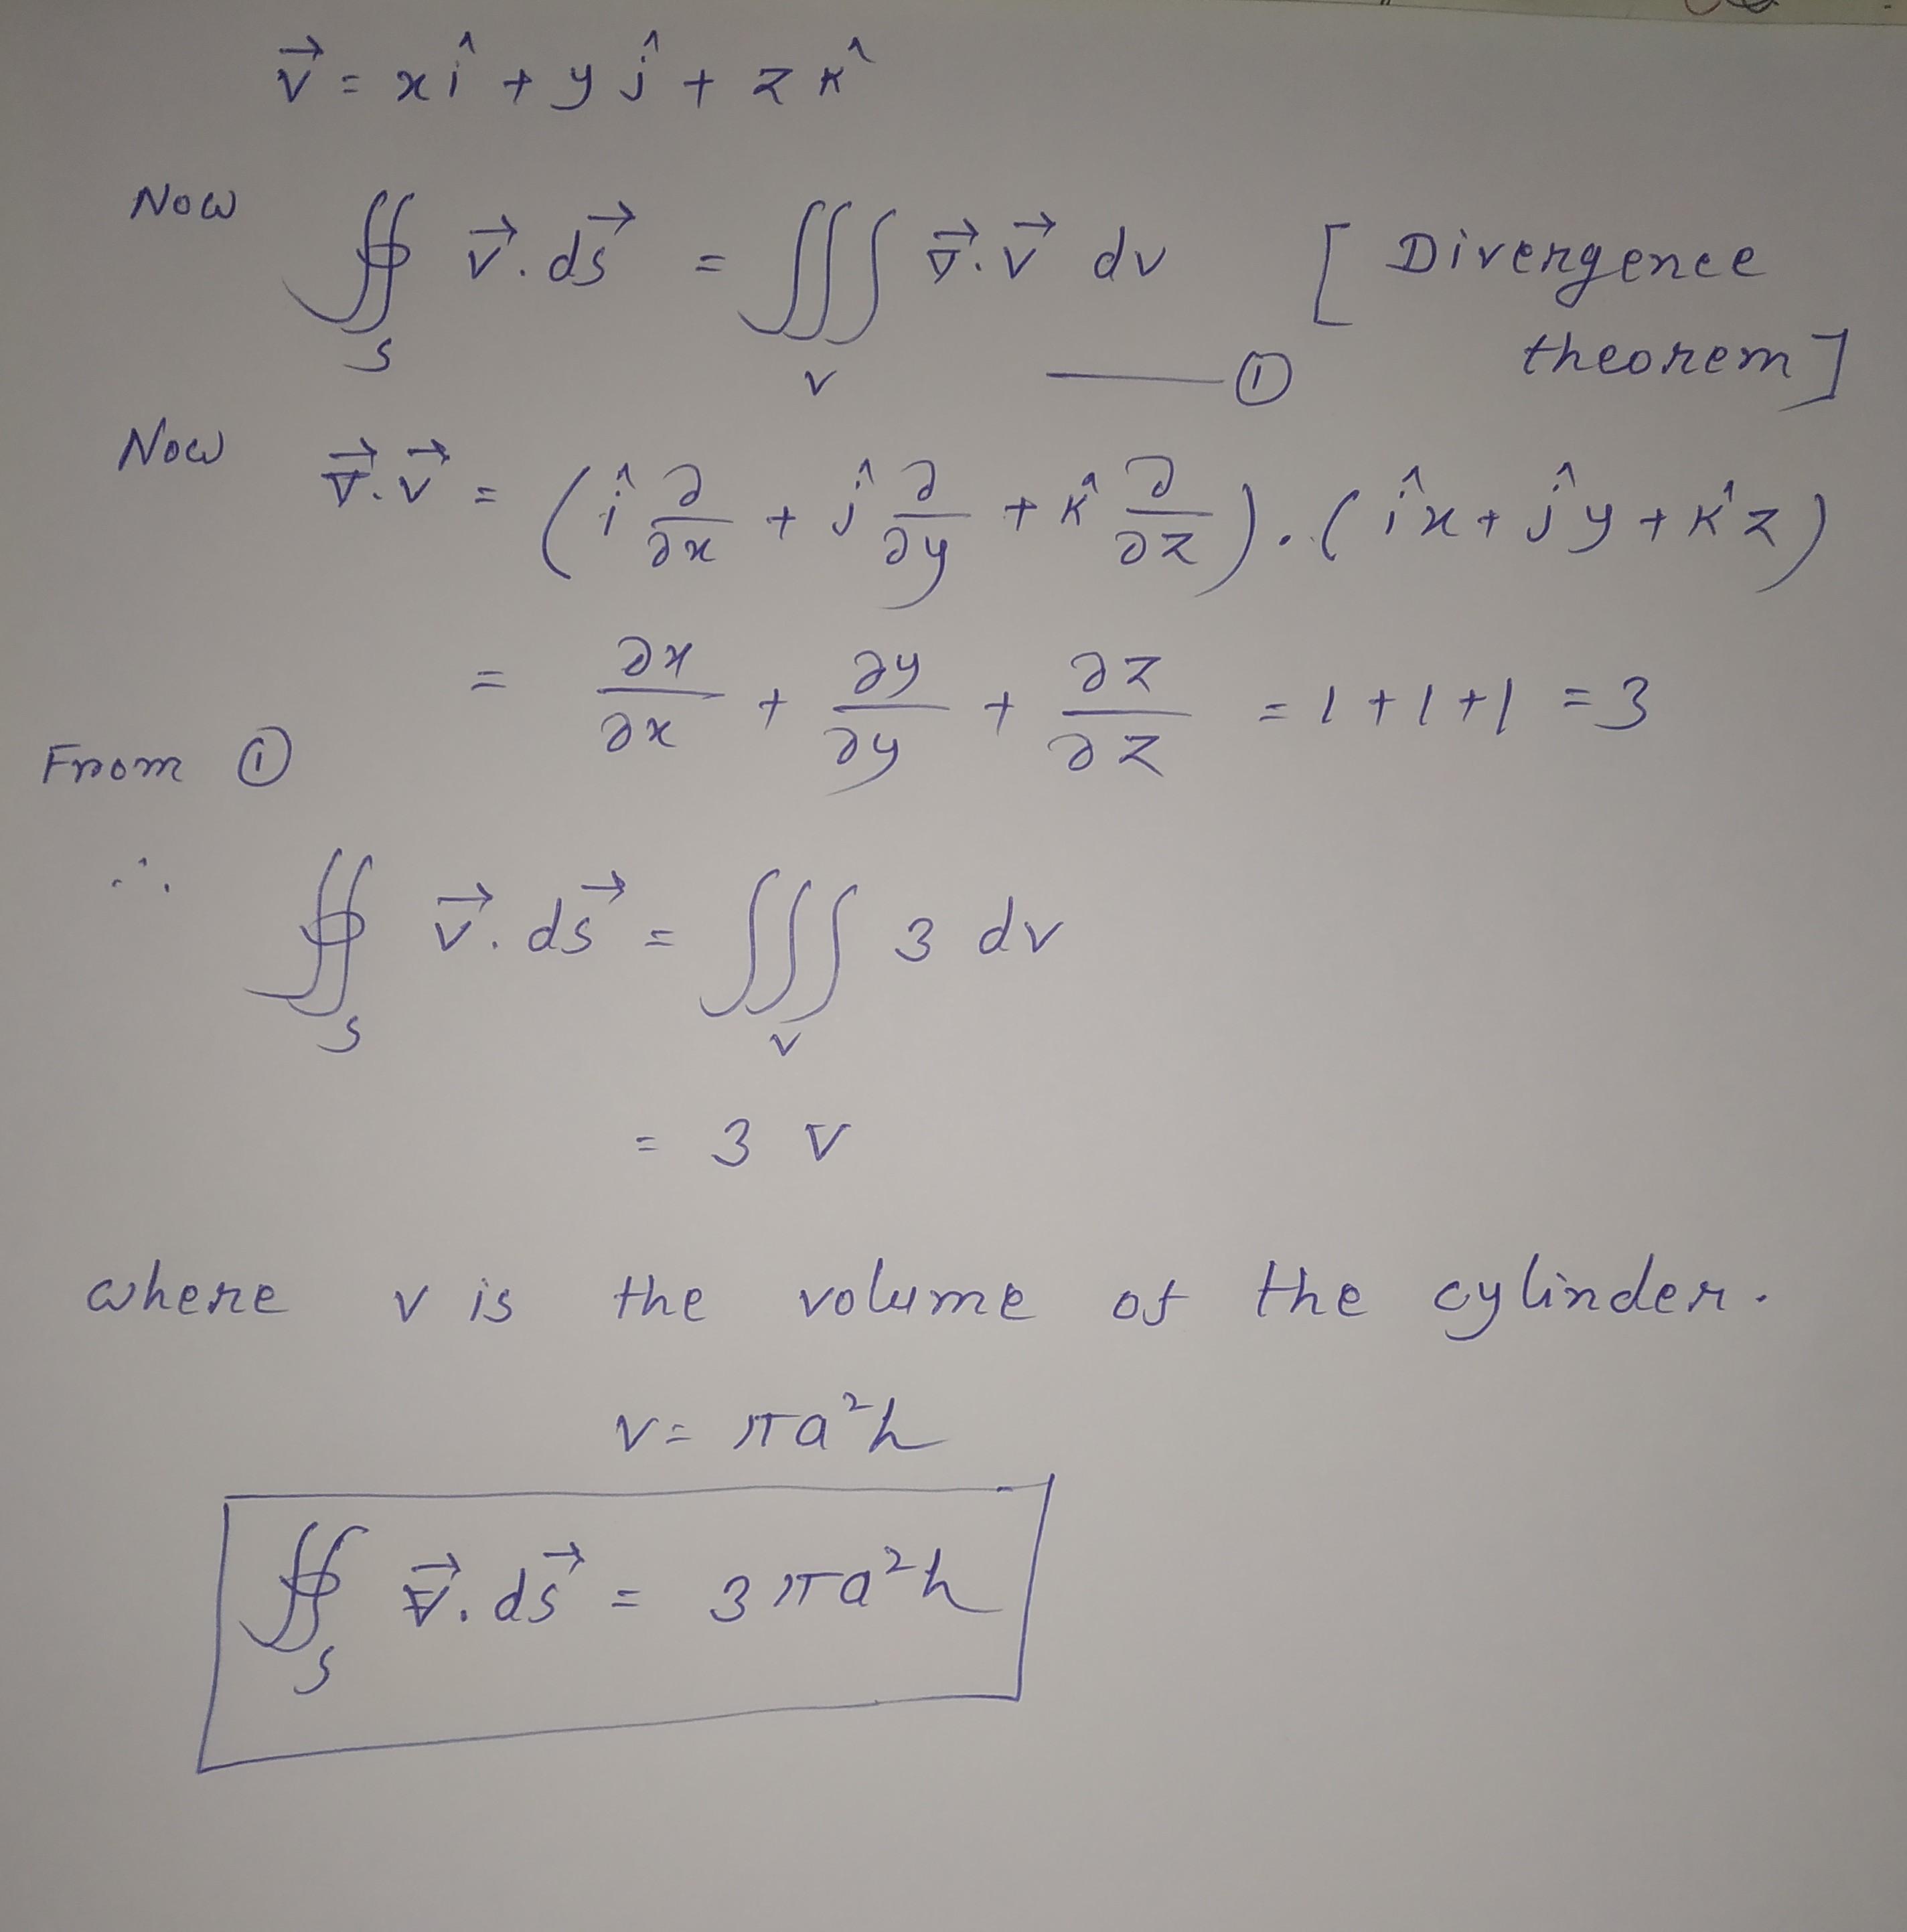 v⃗ = x î + y ĵ + z k̂
Now ∯_S v⃗ . ds⃗ = ∭_V ∇⃗ . v⃗ dv [ Divergence
theorem ]
——— ①
Now ∇⃗ . v⃗ = ( î ∂/∂x + ĵ ∂/∂y + k̂ ∂/∂z ) . ( î x + ĵ y + k̂ z )
= ∂x/∂x + ∂y/∂y + ∂z/∂z = 1 + 1 + 1 = 3
From ①
∴ ∯_S v⃗ . ds⃗ = ∭_V 3 dv
= 3 V
where v is the volume of the cylinder.
V = πa²h
∯_S v⃗ . ds⃗ = 3πa²h